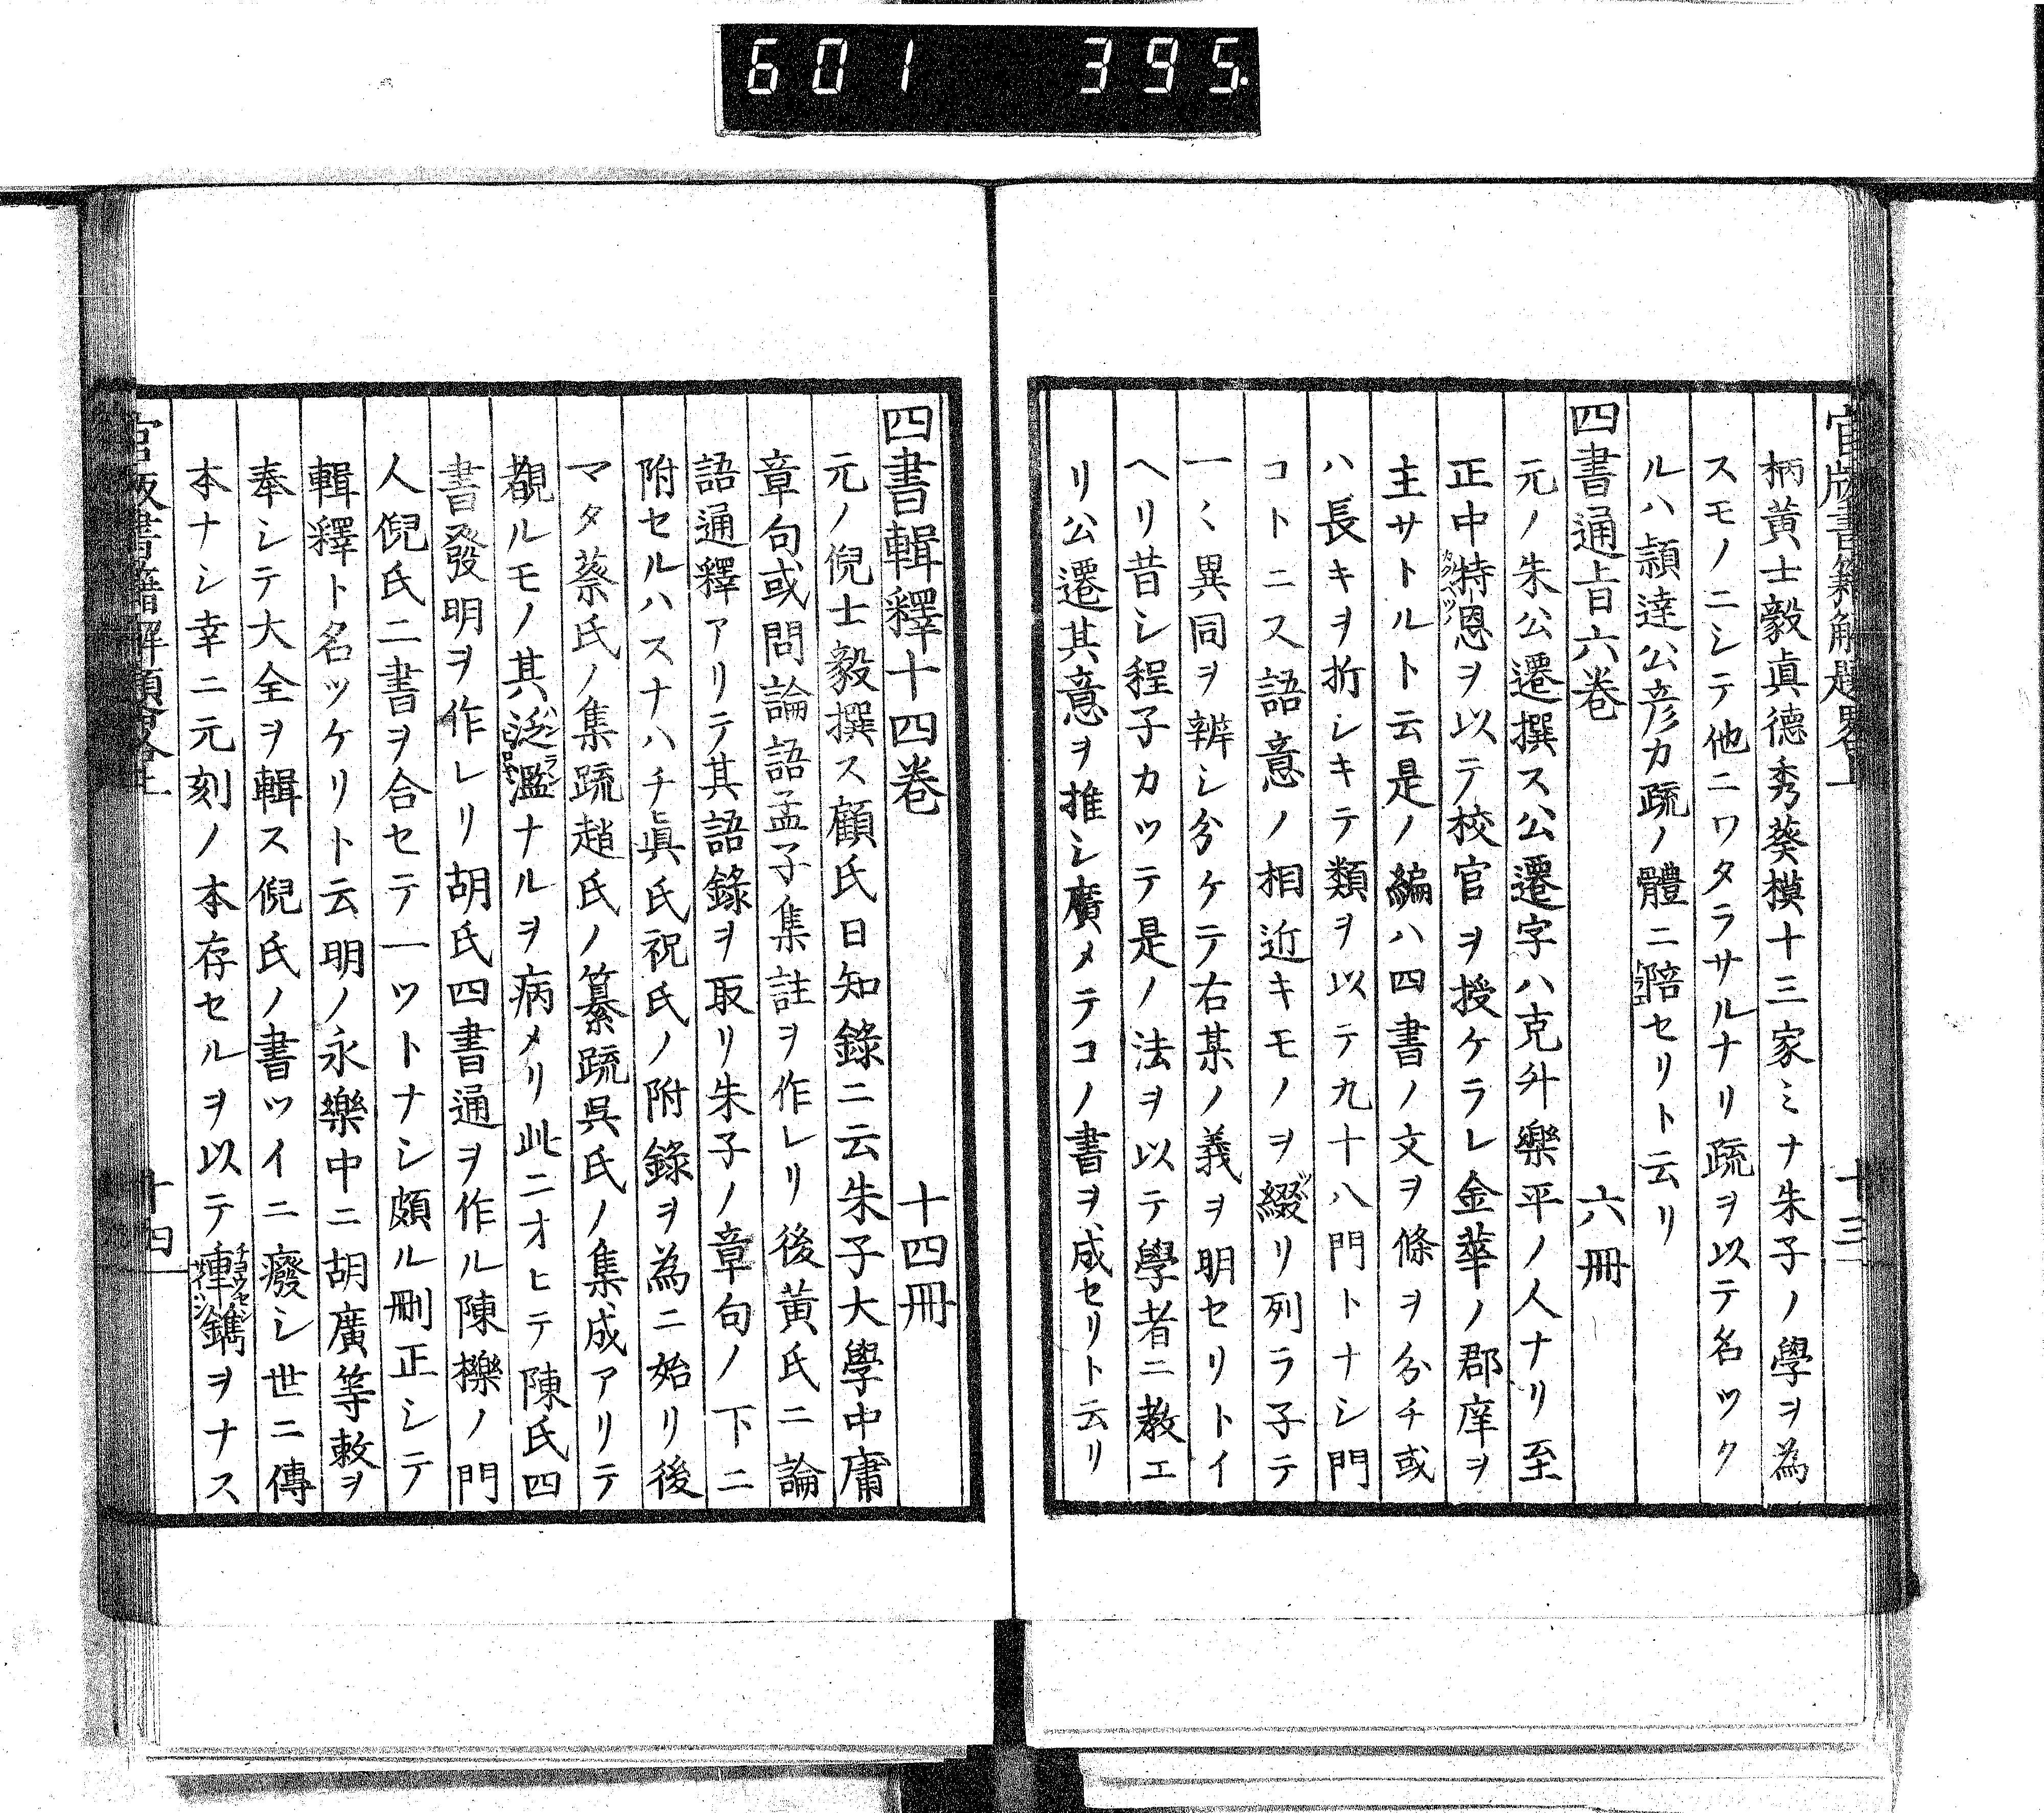 601 395.
官版書籍解題畧上 十三
柄黄士毅眞德秀葵模十三家ミナ朱子ノ學ヲ為
スモノニシテ他ニワタラサルナリ疏ヲ以テ名ツク
ルハ頴達公彦カ疏ノ體ニ陪セリト云リ
四書通旨六巻 六冊
元ノ朱公遷撰ス公遷字ハ克升樂平ノ人ナリ至
正中特恩ヲ以テ校官ヲ授ケラレ金華ノ郡庠ヲ
主サトルト云是ノ編ハ四書ノ文ヲ條ヲ分チ或
ハ長キヲ折シキテ類ヲ以テ九十八門トナシ門
コトニス語意ノ相近キモノヲ綴リ列ラ子テ
一〻異同ヲ辨シ分ケテ右某ノ義ヲ明セリトイ
ヘリ昔シ程子カツテ是ノ法ヲ以テ學者ニ教エ
リ公遷其意ヲ推シ廣メテコノ書ヲ成セリト云リ
四書輯釋十四巻 十四冊
元ノ倪士毅撰ス顧氏日知錄ニ云朱子大學中庸
章句或問論語孟子集註ヲ作レリ後黄氏ニ論
語通釋アリテ其語錄ヲ取リ朱子ノ章句ノ下ニ
附セルハスナハチ眞氏祝氏ノ附錄ヲ為ニ始リ後
マタ蔡氏ノ集疏趙氏ノ纂疏呉氏ノ集成アリテ
覩ルモノ其泛濫ナルヲ病メリ此ニオヒテ陳氏四
書發明ヲ作レリ胡氏四書通ヲ作ル陳櫟ノ門
人倪氏二書ヲ合セテ一ツトナシ頗ル刪正シテ
輯釋ト名ツケリト云明ノ永樂中ニ胡廣等敕ヲ
奉シテ大全ヲ輯ス倪氏ノ書ツイニ癈シ世ニ傳
本ナシ幸ニ元刻ノ本存セルヲ以テ重鐫ヲナス
官版書籍解題畧上 十四